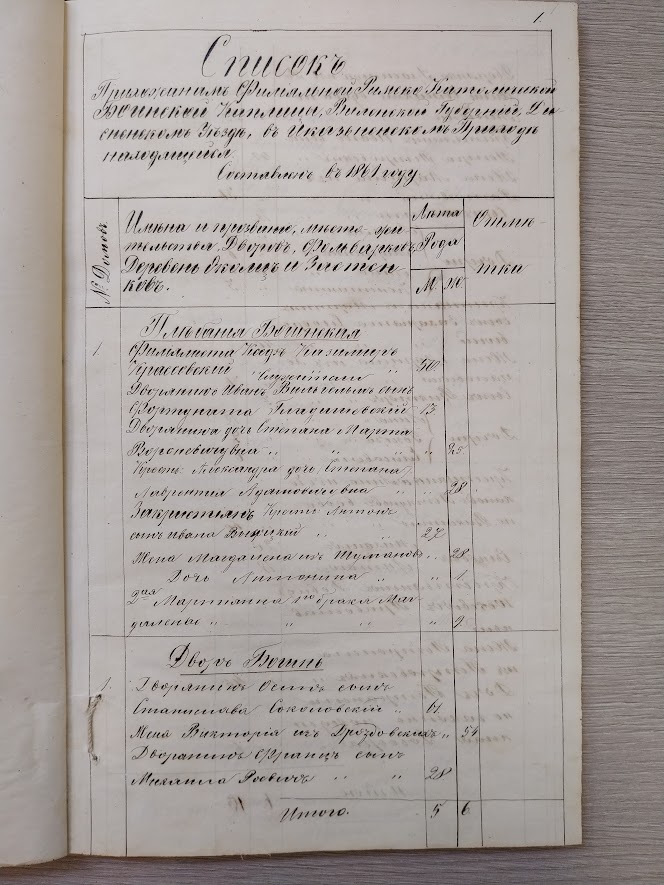 1.
Списокъ
Прихожанамъ Филіяльной Римско Католической
Богинской Каплицы, Виленской Губерніи, Ди-
сненскомъ Уѣздѣ, въ Иказненскомъ Приходѣ
находящейся
Составленъ въ 1861 году
№ Домовъ
Имена и прозваніе, место жи-
тельства Дворовъ, Фольварковъ
Деревень Околицъ и Застен-
ковъ.
Лѣта
Рода
М. Ж
Отмѣ-
тки
Плебанія Богинская
1. Филіялиста Ксендзъ Казимиръ
50
Служители
Дворянинъ Иванъ Вильгельмъ сынъ
Фортуната 13
Дворянка дочь Степана Марта
Вороновичувна „ „ „ 25
Крест: Александра дочь Степана
Лаврентія Адамовичовна „ „ 28
Закристіянъ Крест: Антонъ
сынъ Ивана „ „ 27
Жена Магдалена изъ Шумановъ „ 28
Дочь Антонина „ „ 1
2ая Марціянна 1го брака Маг-
далены „ „ „ „ 9
Дворъ Богинь
1. Дворянинъ Осипъ сынъ
Станислава Соколовскій „ 61
Жена Викторія изъ Дроздовскихъ „ 54
Дворанинъ Францъ сынъ
Михаила „ „ 28
Итого. 5 6